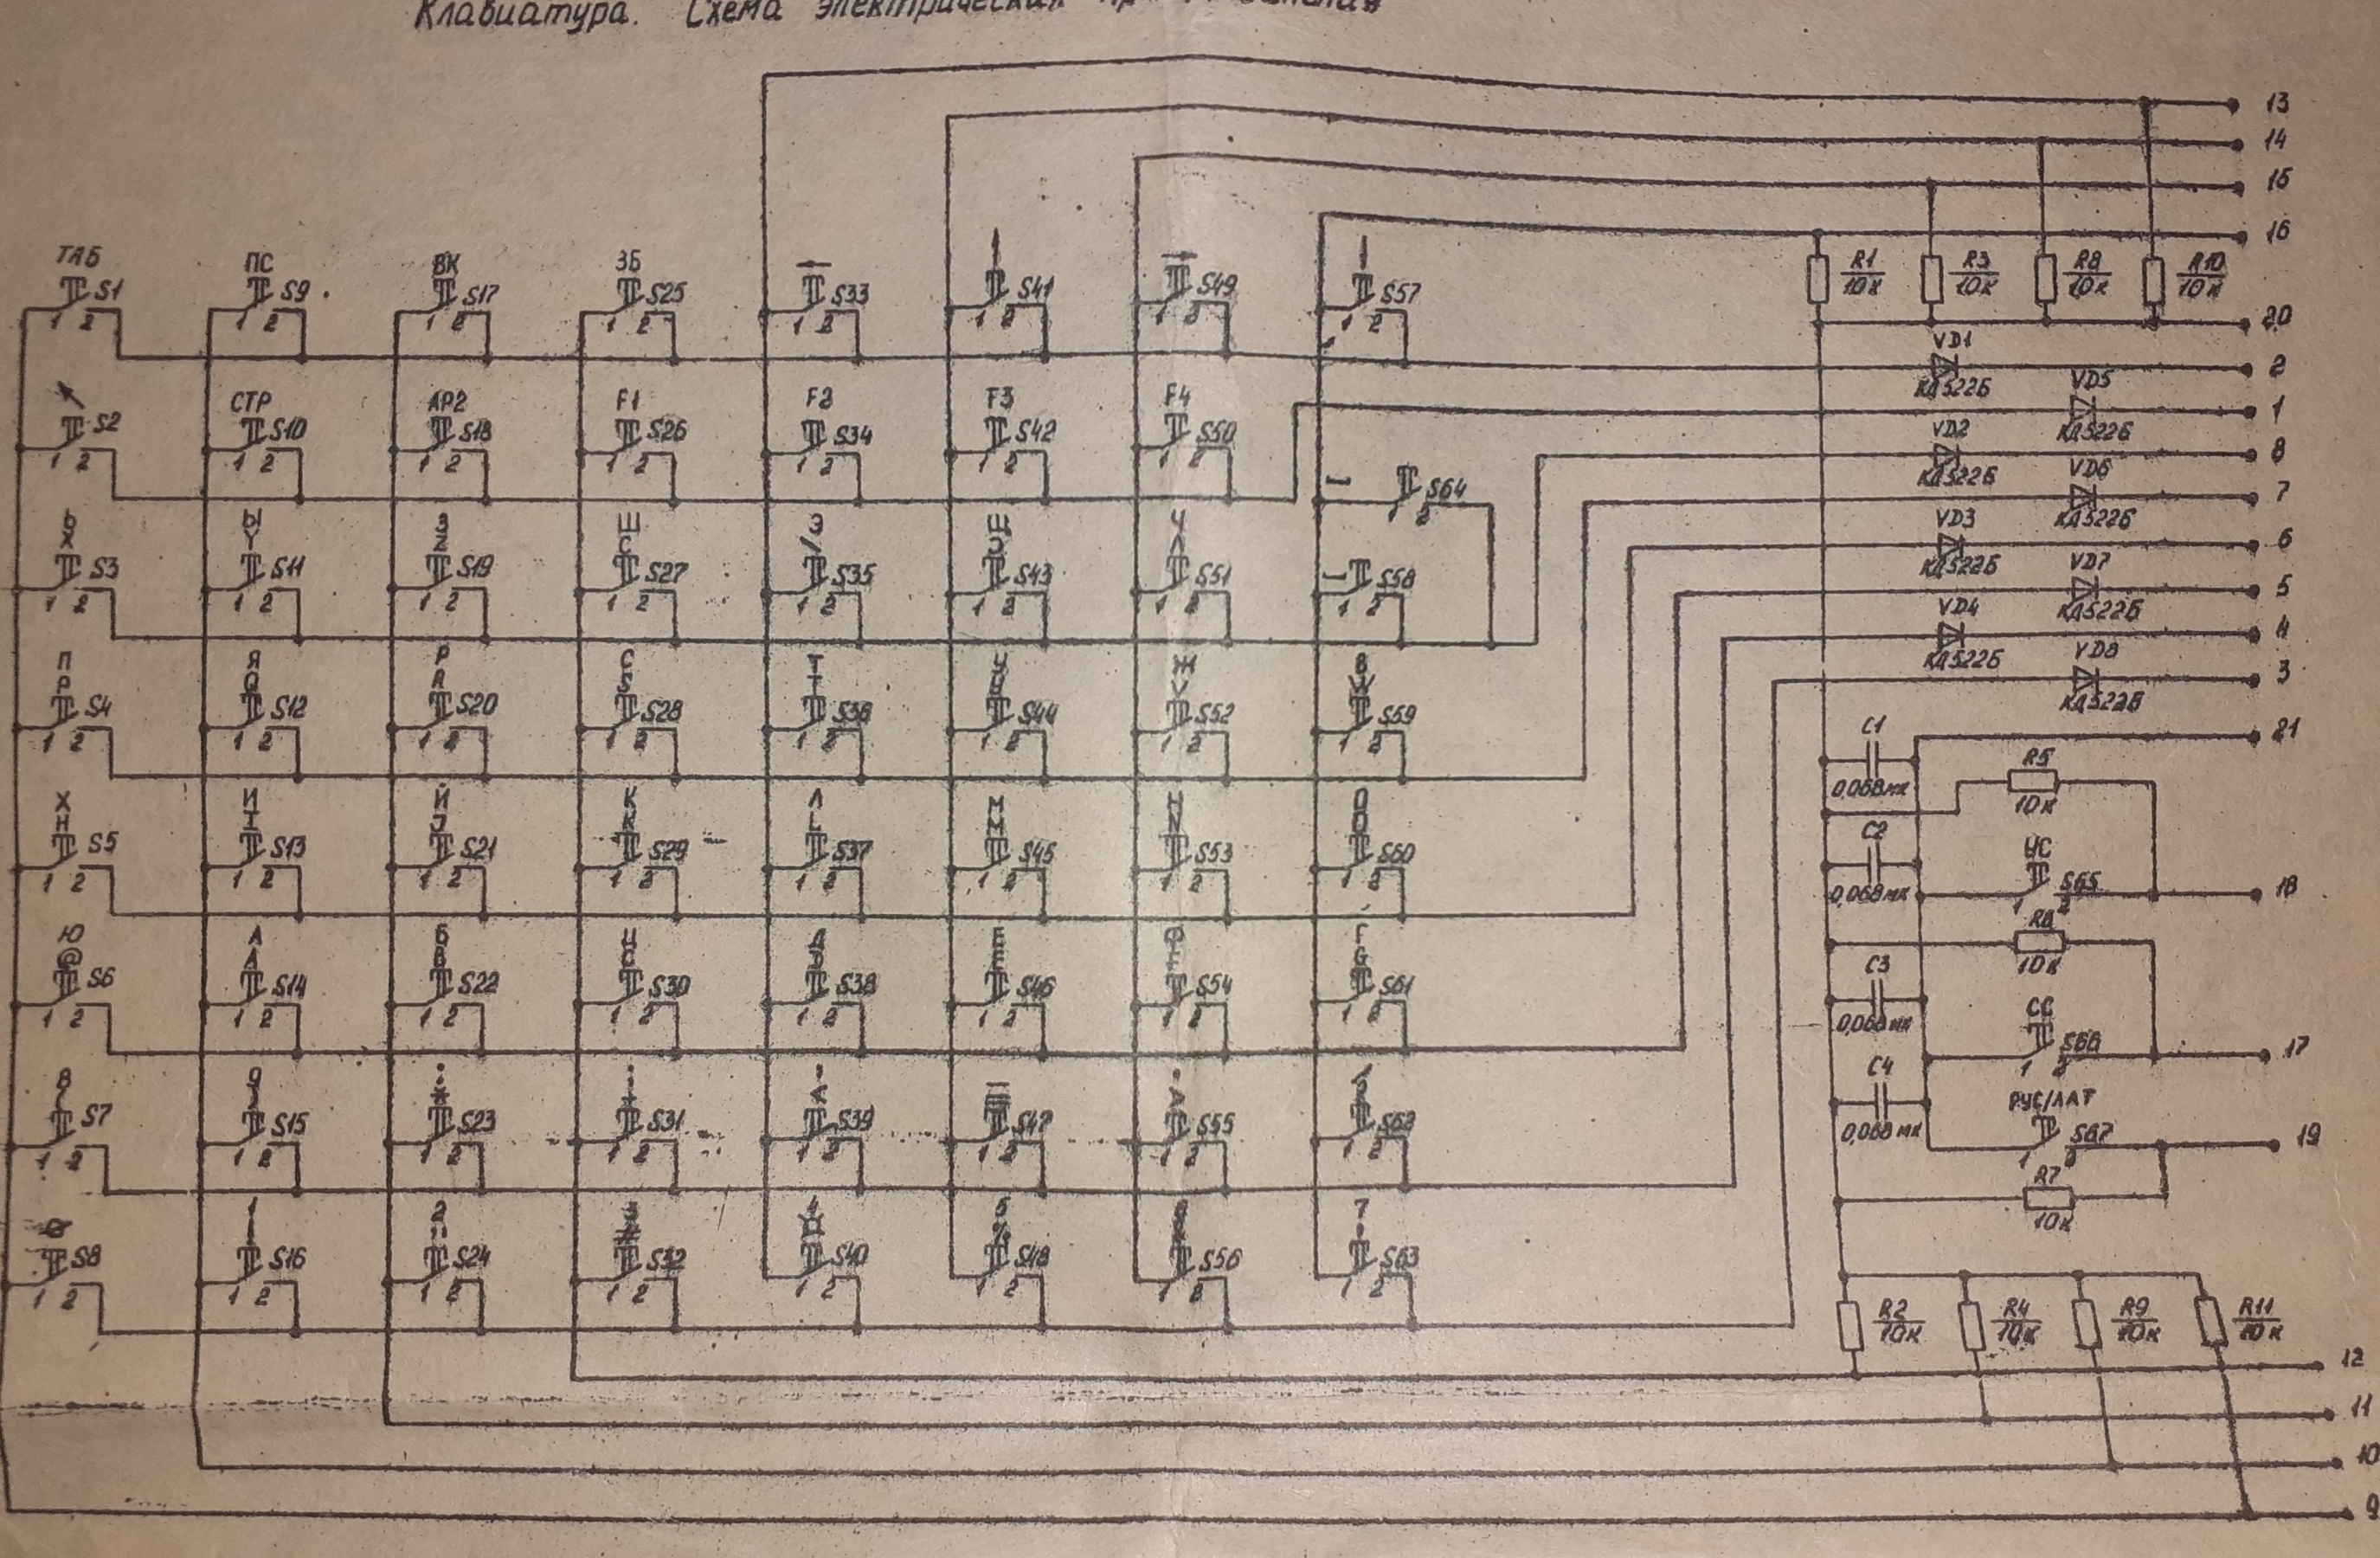 Клавиатура. Схема электрическая
13
14
15
16
R1 10К R3 10К R8 10К R10 10К
20
ТАБ ПС ВК ЗБ
S1 S9 S17 S25 S33 S41 S49 S57
1 2 1 2 1 2 1 2 1 2 1 2 1 2 1 2
VD1 КД522Б 2
VD5 КД522Б 1
СТР АР2 F1 F2 F3 F4
S2 S10 S18 S26 S34 S42 S50
1 2 1 2 1 2 1 2 1 2 1 2 1 2
VD2 КД522Б 8
S64
1 2
VD6 КД522Б 7
Ь Ы З Ш Э Щ Ч
X Y Z [ / ]
S3 S11 S19 S27 S35 S43 S51 S58
1 2 1 2 1 2 1 2 1 2 1 2 1 2 1 2
VD3 КД522Б 6
VD7 КД522Б 5
VD4 КД522Б 4
VD8 КД522Б 3
П Я Р С Т У Ж В
P Q R S T U V W
S4 S12 S20 S28 S36 S44 S52 S59
1 2 1 2 1 2 1 2 1 2 1 2 1 2 1 2
C1 0,068мк 21
R5 10К
Х И Й К Л М Н О
H I J K L M N O
S5 S13 S21 S29 S37 S45 S53 S60
1 2 1 2 1 2 1 2 1 2 1 2 1 2 1 2
C2 0,068мк
УС S65 1 2 18
R6 10К
Ю А Б Ц Д Е Ф Г
@ A B C D E F G
S6 S14 S22 S30 S38 S46 S54 S61
1 2 1 2 1 2 1 2 1 2 1 2 1 2 1 2
C3 0,068мк
СС S66 1 2 17
8 9
S7 S15 S23 S31 S39 S47 S55 S62
1 2 1 2 1 2 1 2 1 2 1 2 1 2 1 2
C4 0,068мк
РУС/ЛАТ S67 1 2 19
R7 10К
1 2 4 5 7
S8 S16 S24 S32 S40 S48 S56 S63
1 2 1 2 1 2 1 2 1 2 1 2 1 2 1 2
R2 10К R4 10К R9 10К R11 10К
12
11
10
9